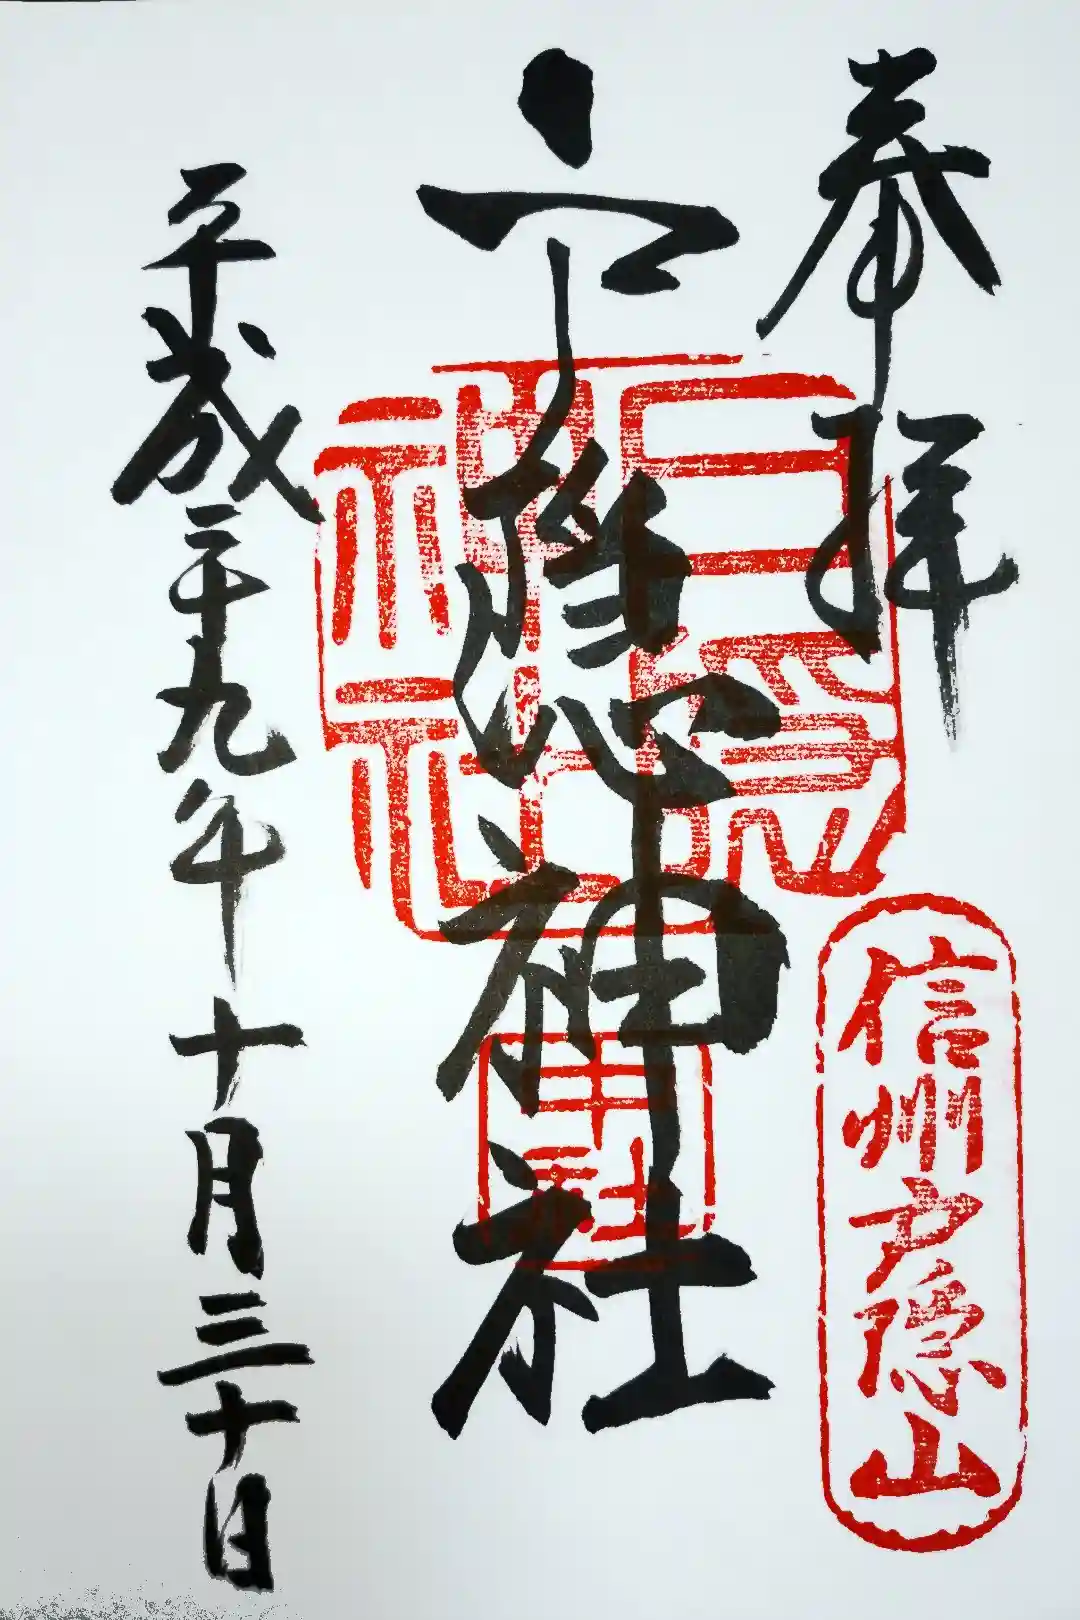 奉拝
信州戸隠山
戸隠神社
戸隠神社
中社
平成二十九年十月三十日